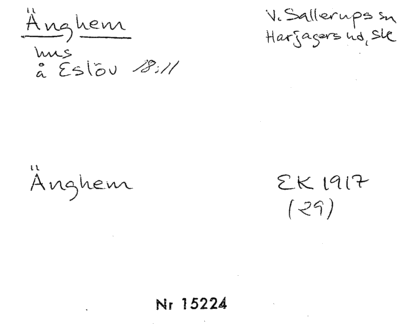 Änghem
V. Sallerups sn
Harjagers hd, Sk
hus
å Eslöv 18:11
Änghem
EK 1917
(29)
Nr 15224